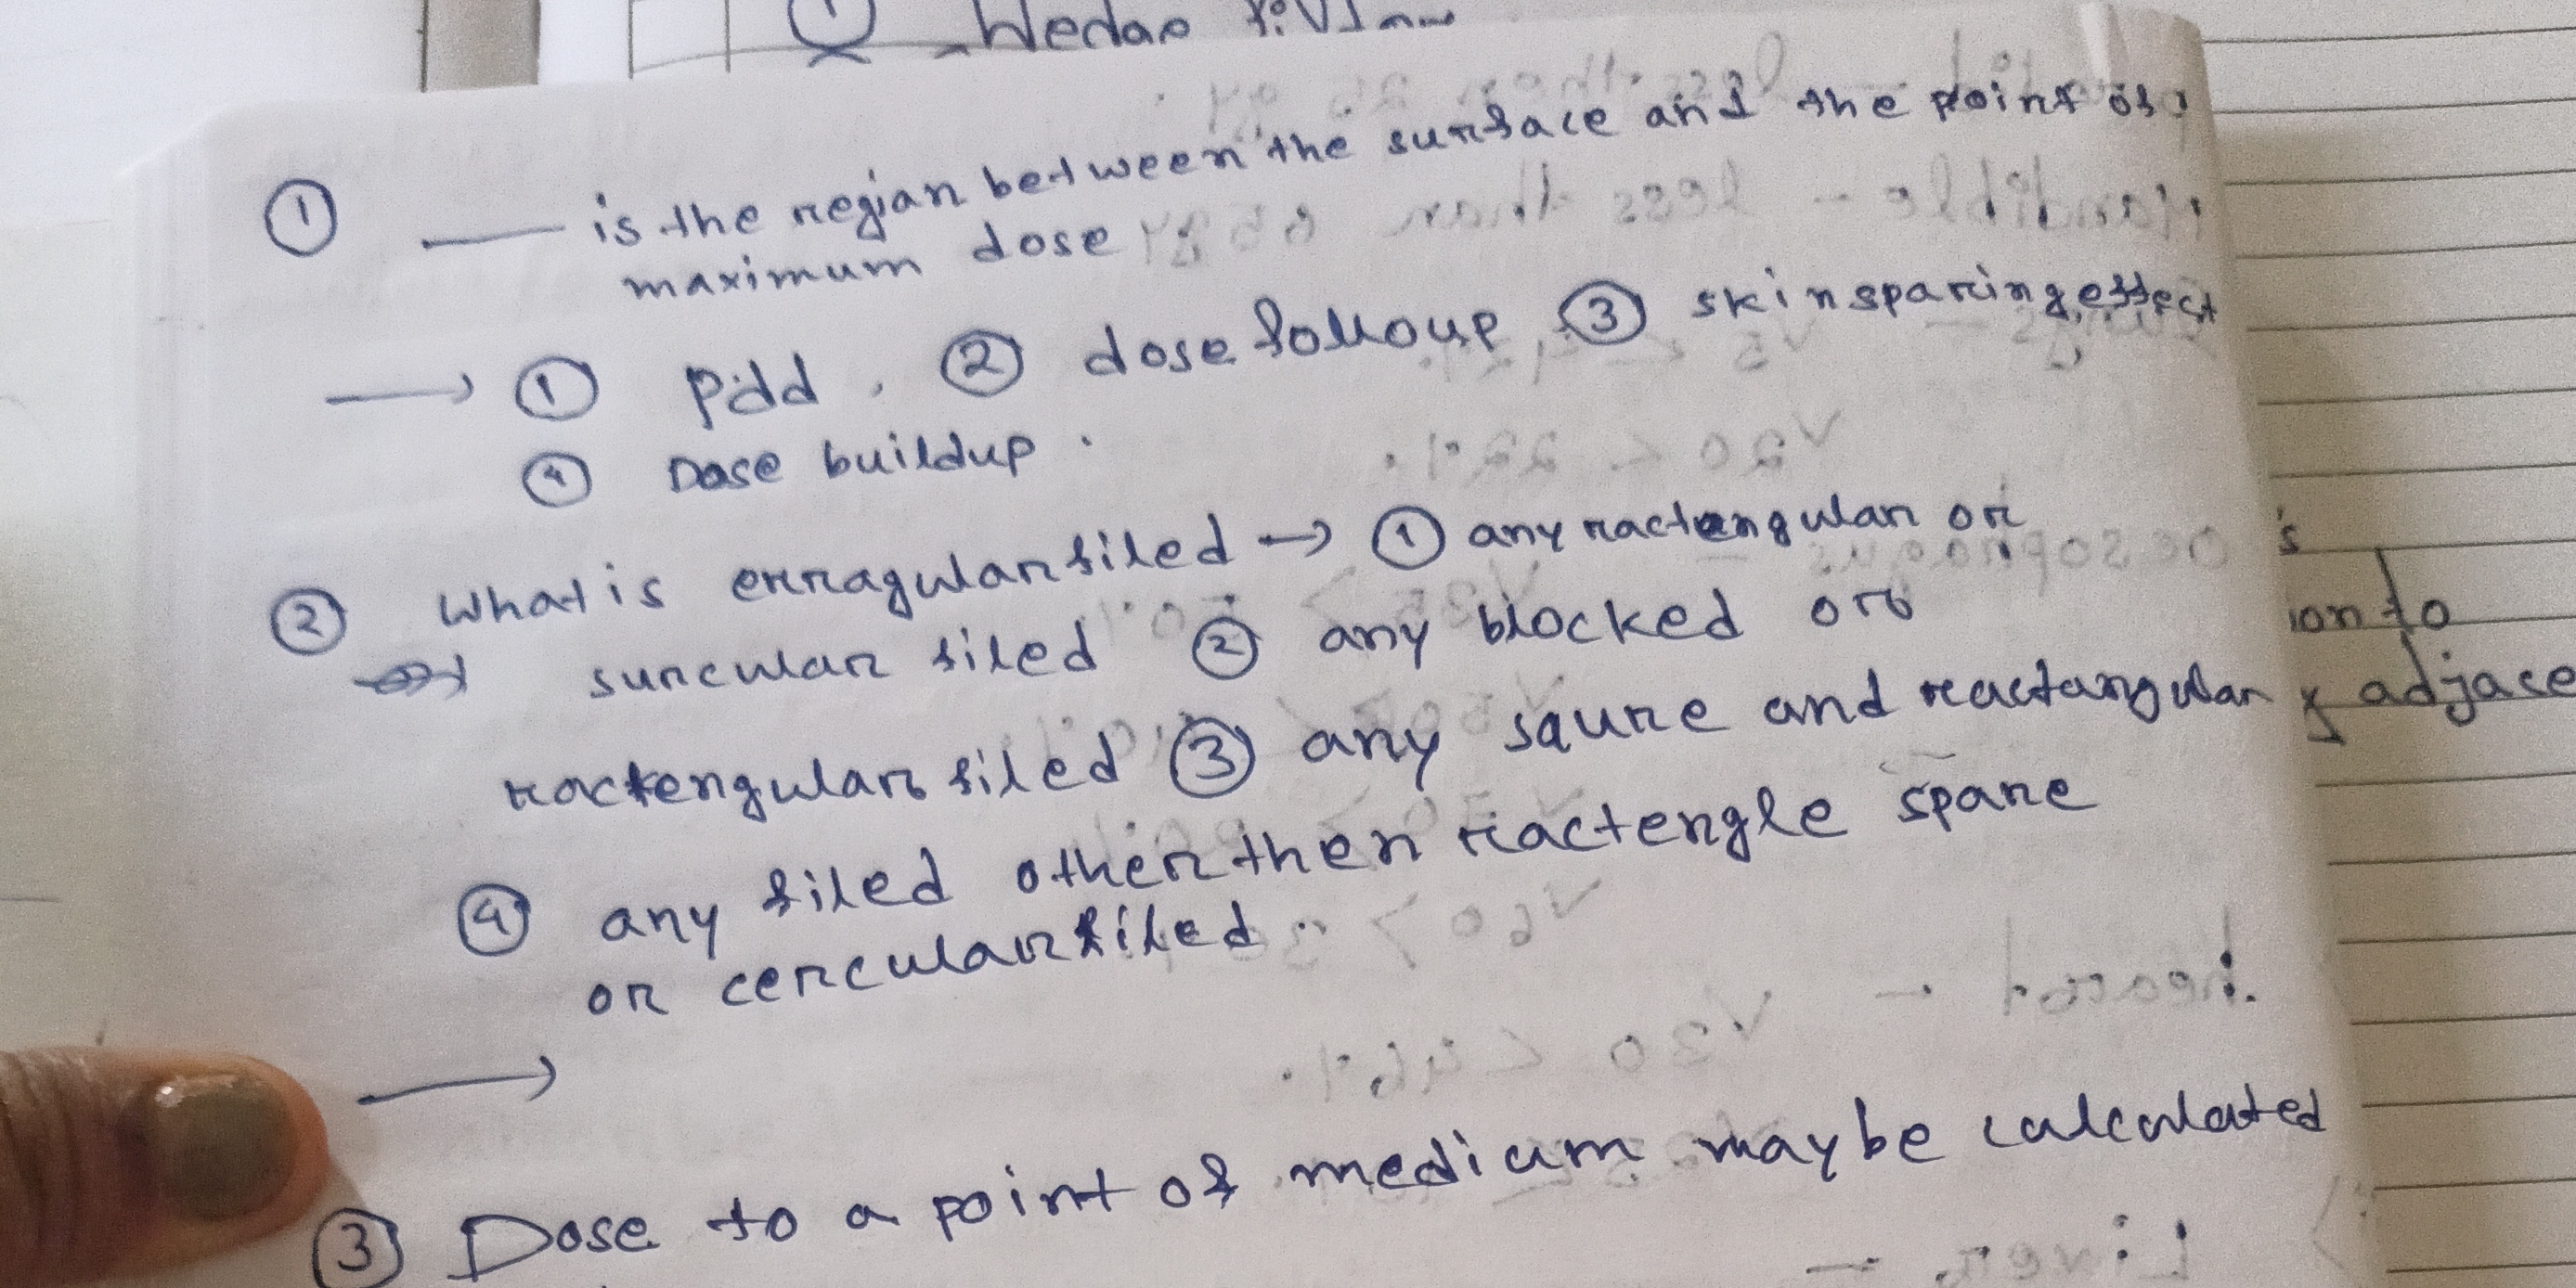 ① ___ is the regian between the surface and the point of
maximum dose
→ ① Pdd . ② dose folloup ③ skin sparing effect
④ Dose buildup .
② What is erragular filed → ① any ractangular or
surcular filed ② any blocked or
ractengular filed ③ any saure and ractangular
④ any filed other then ractengle spare
or cercular filed .
→
③ Dose to a point of medium may be calculated
's
ion to
y adjace